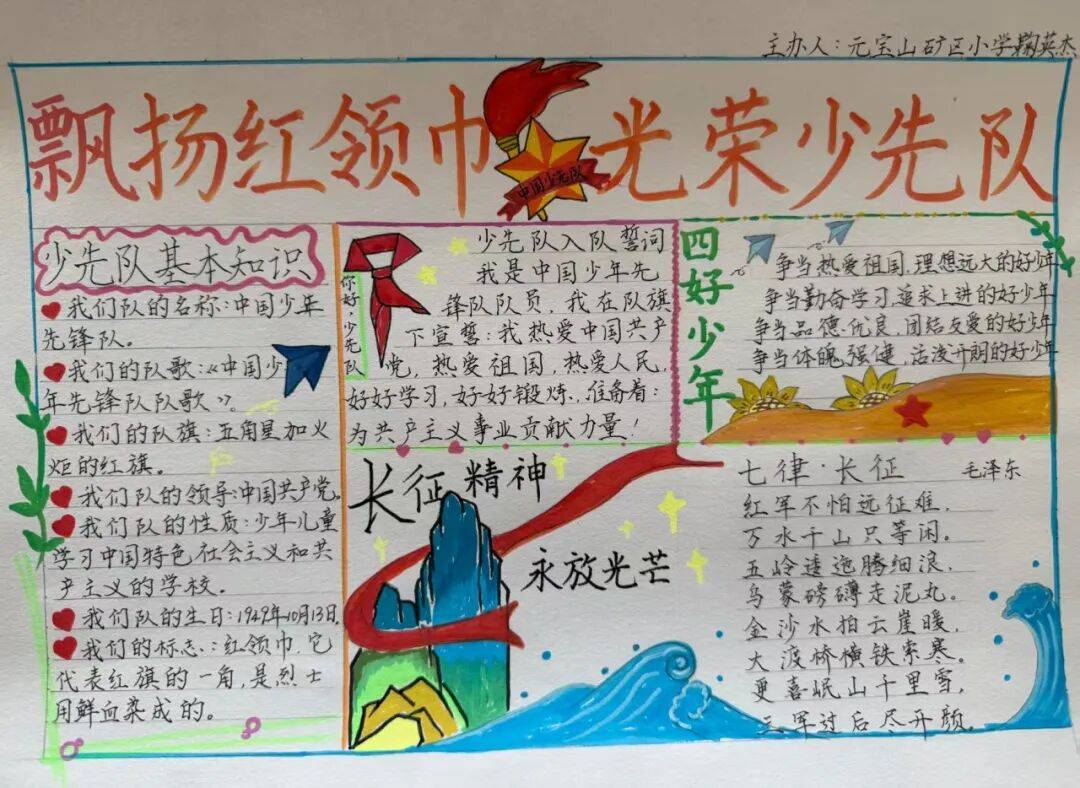 主办人:元宝山矿区小学鞠英杰
飘扬红领巾 光荣少先队
中国少先队
少先队基本知识
我们队的名称:中国少年
先锋队。
我们的队歌:《中国少
年先锋队队歌》。
我们的队旗:五角星加火
炬的红旗。
我们队的领导:中国共产党。
我们队的性质:少年儿童
学习中国特色社会主义和共
产主义的学校。
我们队的生日:1949年10月13日。
我们的标志:红领巾,它
代表红旗的一角,是烈士
用鲜血染成的。
你好少先队
少先队入队誓词
我是中国少年先
锋队队员,我在队旗
下宣誓:我热爱中国共产
党,热爱祖国,热爱人民,
好好学习,好好锻炼,准备着:
为共产主义事业贡献力量!
四好少年
争当热爱祖国,理想远大的好少年
争当勤奋学习,追求上进的好少年
争当品德优良,团结友爱的好少年
争当体魄强健,活泼开朗的好少年
长征精神
永放光芒
七律·长征 毛泽东
红军不怕远征难,
万水千山只等闲。
五岭逶迤腾细浪,
乌蒙磅礴走泥丸。
金沙水拍云崖暖,
大渡桥横铁索寒。
更喜岷山千里雪,
三军过后尽开颜。